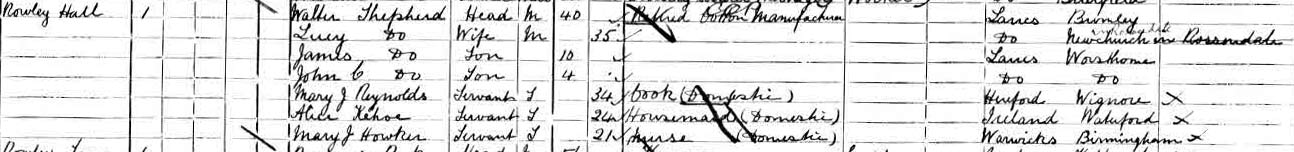 Rowley Hall 1 Walter Shepherd Head M 40 Retired Cotton Manufacturer Lancs Burnley
Lucy Do Wife M 35 Do Newchurch in Rossendale
James Do Son 10 Lancs Worsthorne
John C Do Son 4 Do Do
Mary J Reynolds Servant S 34 Cook (Domestic) Hereford Wigmore X
Alice Kehoe Servant S 24 Housemaid (Domestic) Ireland Waterford X
Mary J Howker Servant S 21 Nurse (Domestic) Warwicks Birmingham X